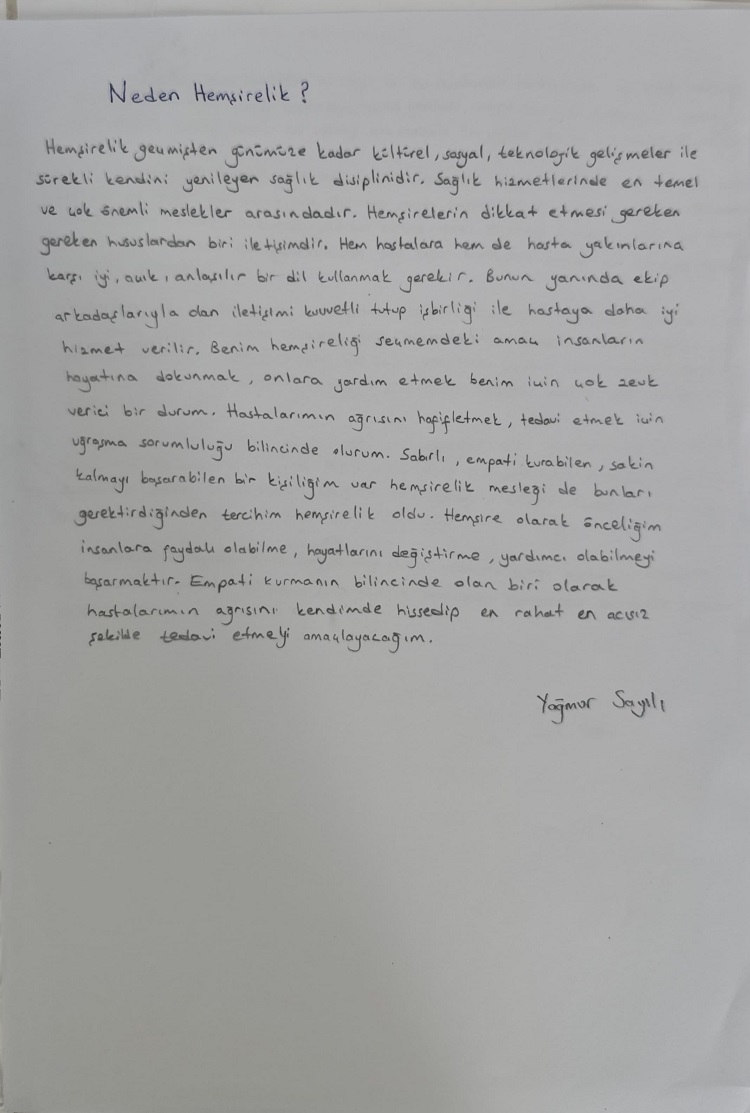 Neden Hemşirelik ?
Hemşirelik geçmişten günümüze kadar kültürel, sosyal, teknolojik gelişmeler ile
sürekli kendini yenileyen sağlık disiplinidir. Sağlık hizmetlerinde en temel
ve çok önemli meslekler arasındadır. Hemşirelerin dikkat etmesi gereken
gereken hususlardan biri iletişimdir. Hem hastalara hem de hasta yakınlarına
karşı iyi, açık, anlaşılır bir dil kullanmak gerekir. Bunun yanında ekip
arkadaşlarıyla olan iletişimi kuvvetli tutup işbirliği ile hastaya daha iyi
hizmet verilir. Benim hemşireliği seçmemdeki amaç insanların
hayatına dokunmak, onlara yardım etmek benim için çok zevk
verici bir durum. Hastalarımın ağrısını hafifletmek, tedavi etmek için
uğraşma sorumluluğu bilincinde olurum. Sabırlı, empati kurabilen, sakin
kalmayı başarabilen bir kişiliğim var hemşirelik mesleği de bunları
gerektirdiğinden tercihim hemşirelik oldu. Hemşire olarak önceliğim
insanlara faydalı olabilme, hayatlarını değiştirme, yardımcı olabilmeyi
başarmaktır. Empati kurmanın bilincinde olan biri olarak
hastalarımın ağrısını kendimde hissedip en rahat en acısız
şekilde tedavi etmeyi amaçlayacağım.
Yağmur Sayılı